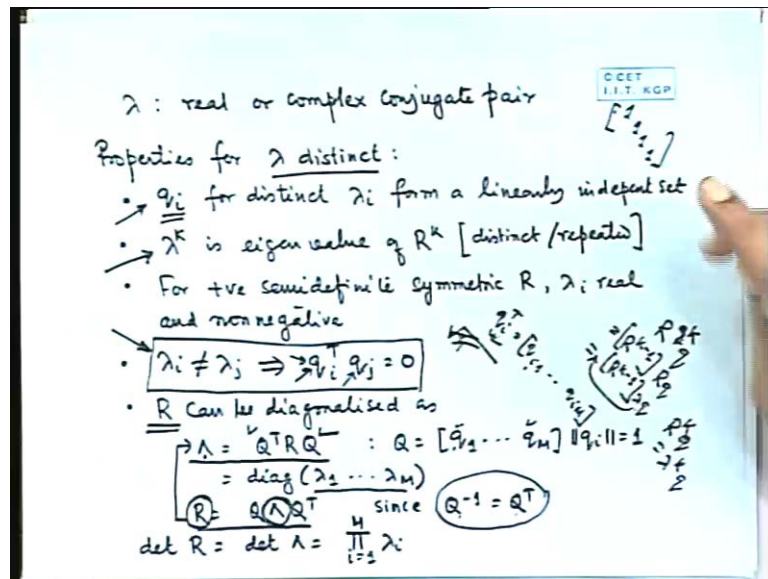 © CET
I.I.T. KGP
λ : real or complex conjugate pair
Properties for λ distinct :
• qᵢ for distinct λᵢ form a linearly indepent set
• λᵏ is eigen value of Rᵏ [distinct / repeated]
• For +ve semidefinite symmetric R, λᵢ real
and nonnegative
• λᵢ ≠ λⱼ ⇒ qᵢᵀ qⱼ = 0
• R can be diagonalised as
Λ = QᵀRQ : Q = [q₁ ... q_M] ||qᵢ|| = 1
= diag (λ₁ ... λ_M)
R = QΛQᵀ since Q⁻¹ = Qᵀ
det R = det Λ = ∏ᵢ₌₁ᴹ λᵢ